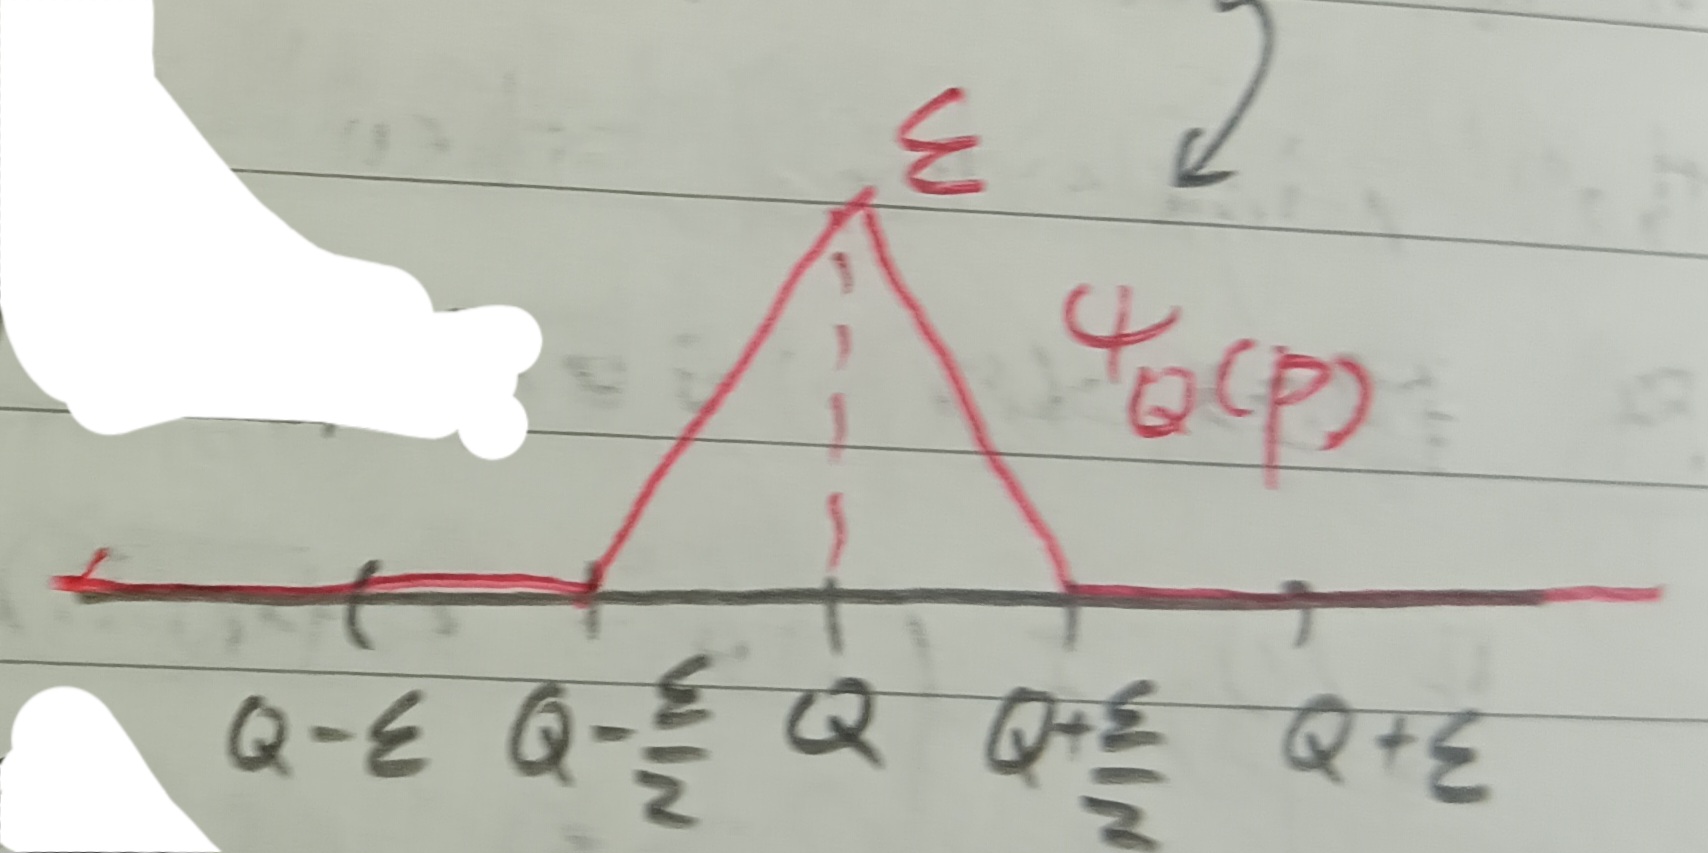 ε
ψ_Q(p)
Q-ε Q-ε/2 Q Q+ε/2 Q+ε